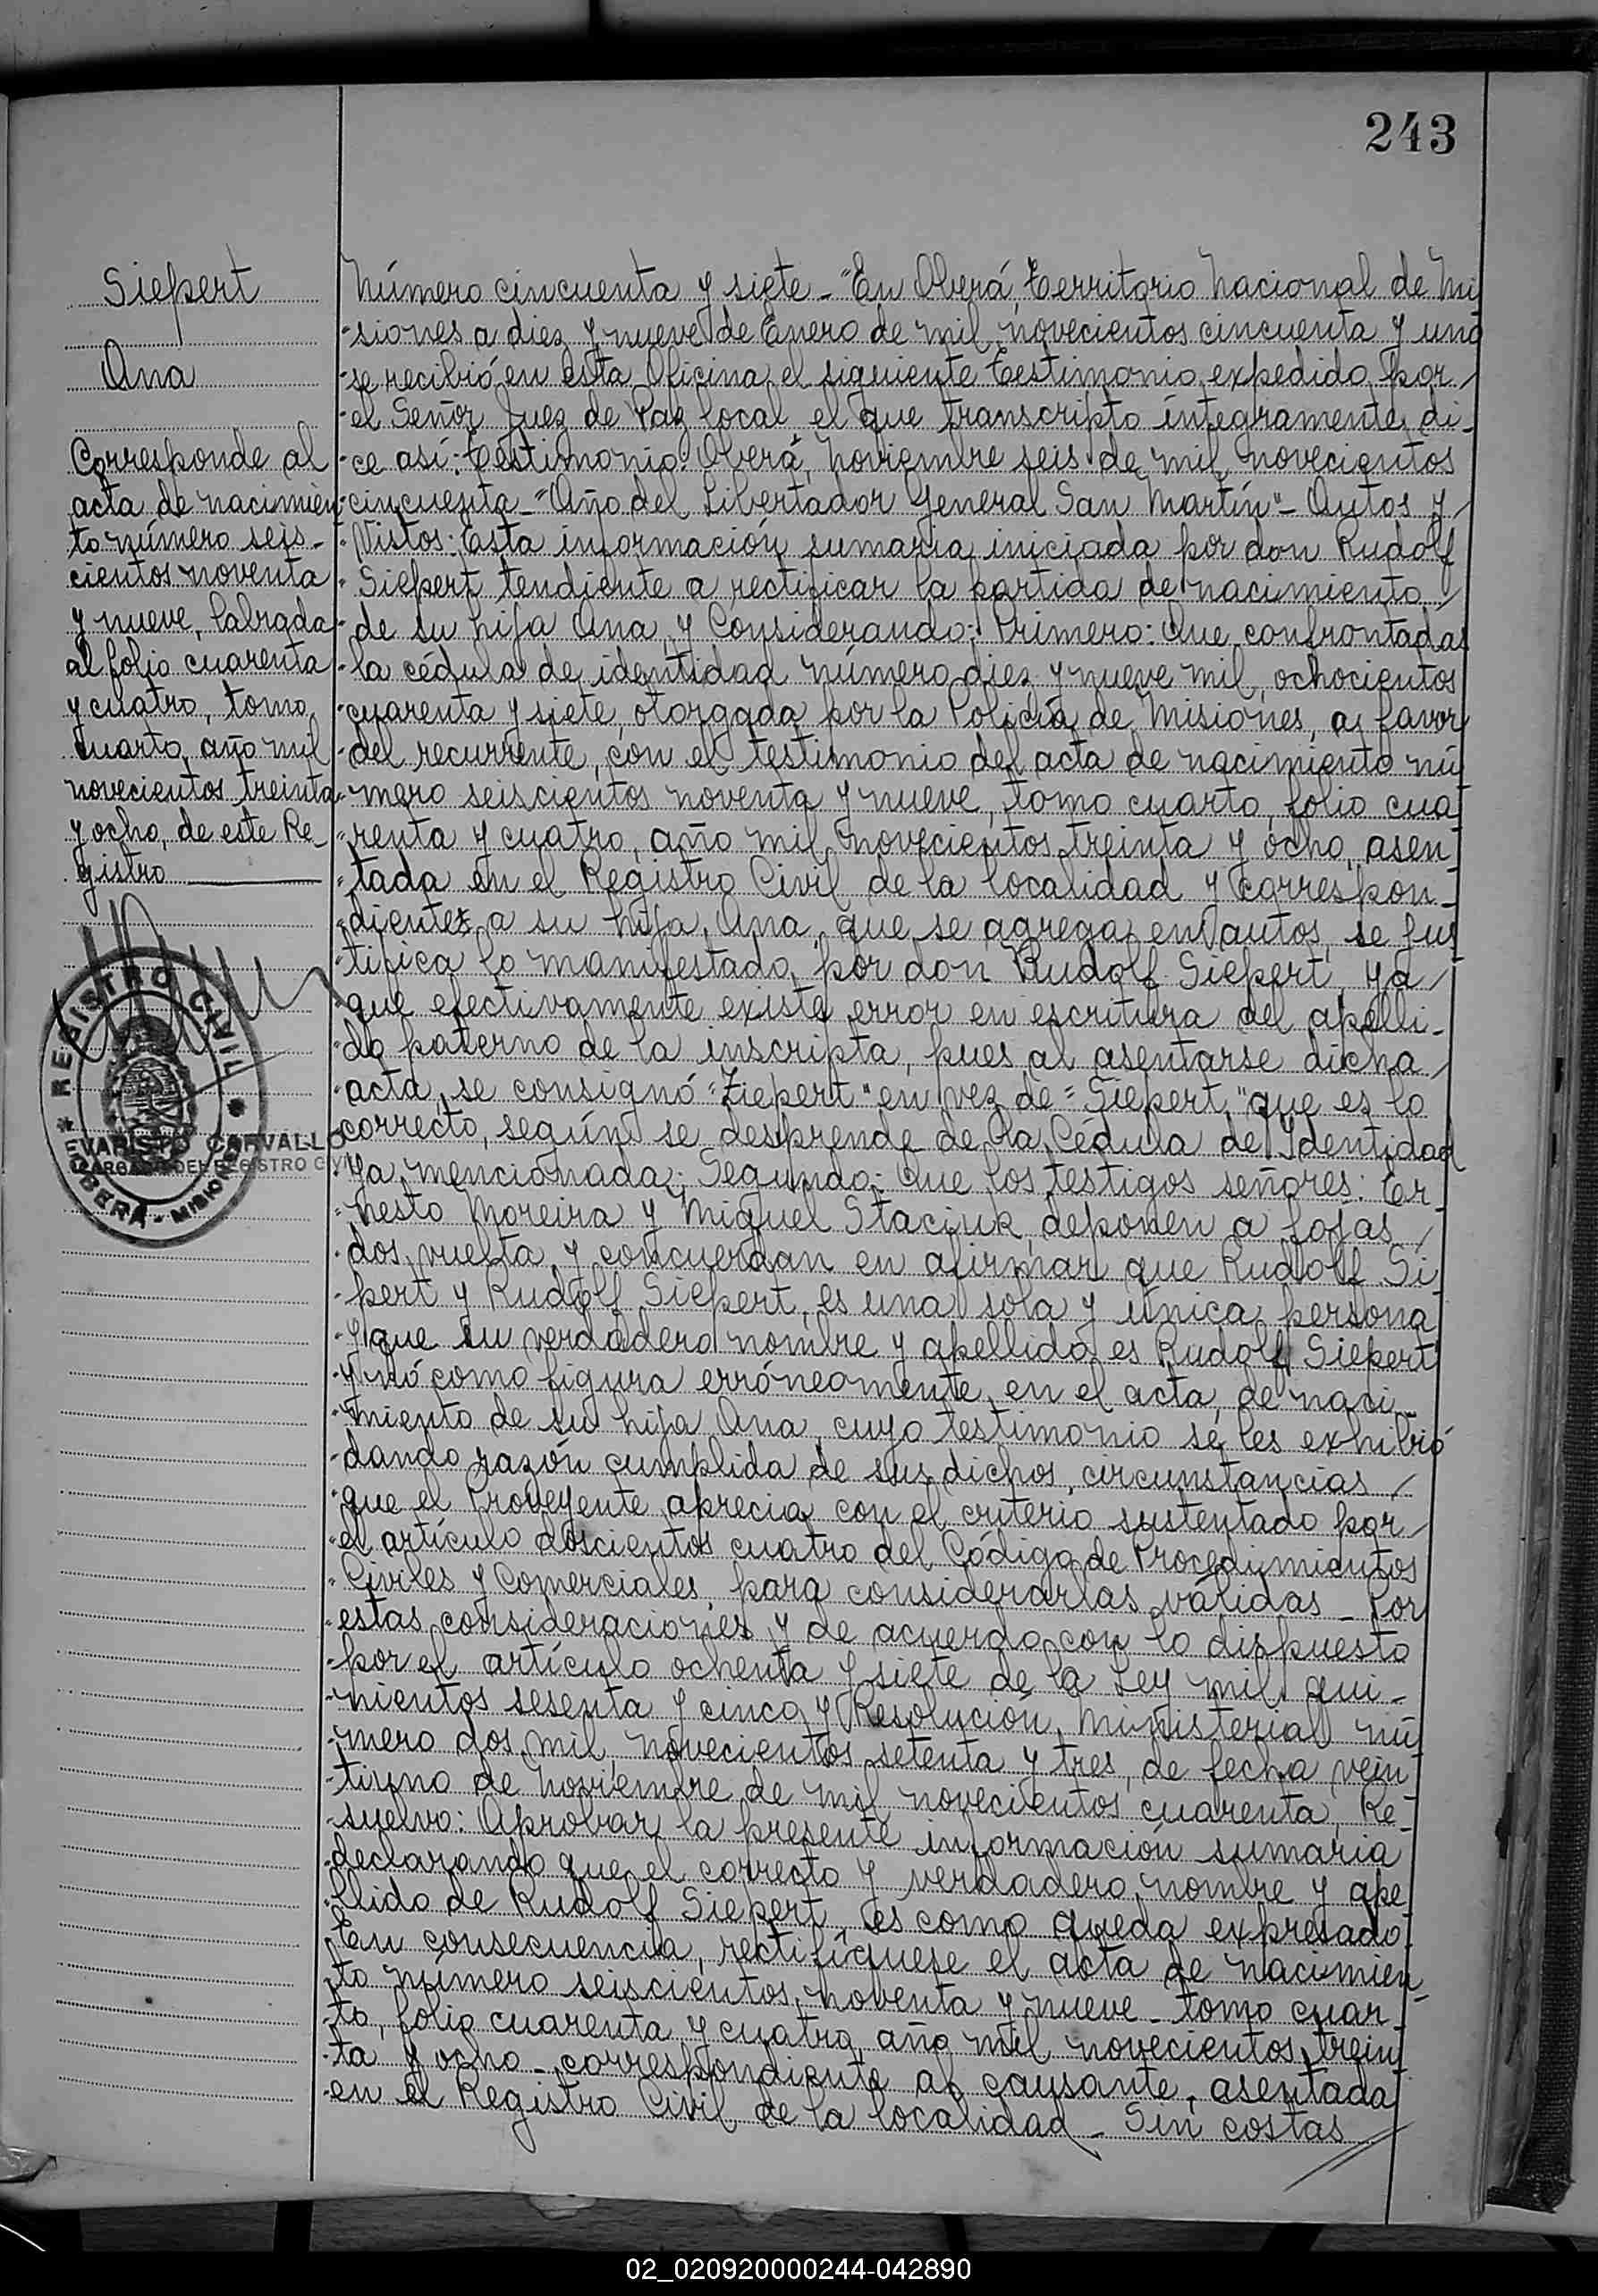 243
Siepert
Ana
Corresponde al
acta de nacimien
to número seis-
cientos noventa
y nueve, labrada
al folio cuarenta
y cuatro, tomo
cuarto, año mil
novecientos treinta
y ocho, de este Re-
gistro
REGISTRO CIVIL
EVARISTO CARVALLO
ENCARGADO DEL REGISTRO CIVIL
OBERÁ - MISIONES
Número cincuenta y siete - "En Oberá, Territorio Nacional de Mi
siones a diez y nueve de Enero de mil novecientos cincuenta y uno
se recibió en esta Oficina el siguiente Testimonio expedido por
el Señor Juez de Paz local el que transcripto íntegramente di-
ce así: Testimonio: Oberá, Noviembre seis de mil novecientos
cincuenta - "Año del Libertador General San Martín" - Autos y
Vistos: Esta información sumaria iniciada por don Rudolf
Siepert tendiente a rectificar la partida de nacimiento
de su hija Ana, y Considerando: Primero: Que confrontadas
la cédula de identidad número diez y nueve mil, ochocientos
cuarenta y siete, otorgada por la Policía de Misiones, a favor
del recurrente, con el testimonio del acta de nacimiento nú
mero seiscientos noventa y nueve, tomo cuarto, folio cua
renta y cuatro, año mil novecientos treinta y ocho, asen
tada en el Registro Civil de la localidad y correspon-
diente a su hija Ana, que se agrega en autos, se jus
tifica lo manifestado por don Rudolf Siepert, ya
que efectivamente existe error en escritura del apelli-
do paterno de la inscripta, pues al asentarse dicha
acta, se consignó "Ziepert" en vez de "Siepert," que es lo
correcto, según se desprende de la Cédula de Identidad
ya mencionada; Segundo: Que los testigos señores: Er-
nesto Moreira y Miguel Staciuk, deponen a fojas
dos vuelta y concuerdan en afirmar que Rudolf Si
pert y Rudolf Siepert, es una sola y única persona
y que su verdadero nombre y apellido es Rudolf Siepert
y nó como figura erróneamente en el acta de naci-
miento de su hija Ana, cuyo testimonio se les exhibió
dando razón cumplida de sus dichos, circunstancias
que el Proveyente aprecia con el criterio sustentado por
el artículo doscientos cuatro del Código de Procedimientos
Civiles y Comerciales, para considerarlas válidas - Por
estas consideraciones y de acuerdo con lo dispuesto
por el artículo ochenta y siete de la Ley mil qui-
nientos sesenta y cinco y Resolución Ministerial nú
mero dos mil, novecientos setenta y tres, de fecha vein
tiuno de Noviembre de mil novecientos cuarenta, Re-
suelvo: Aprobar la presente información sumaria
declarando que el correcto y verdadero nombre y ape
llido de Rudolf Siepert, es como queda expresado.
En consecuencia, rectifíquese el acta de nacimien-
to número seiscientos noventa y nueve - tomo cuar-
to, folio cuarenta y cuatro, año mil novecientos trein
ta y ocho - correspondiente al causante, asentada
en el Registro Civil de la localidad - Sin costas
02_020920000244-042890